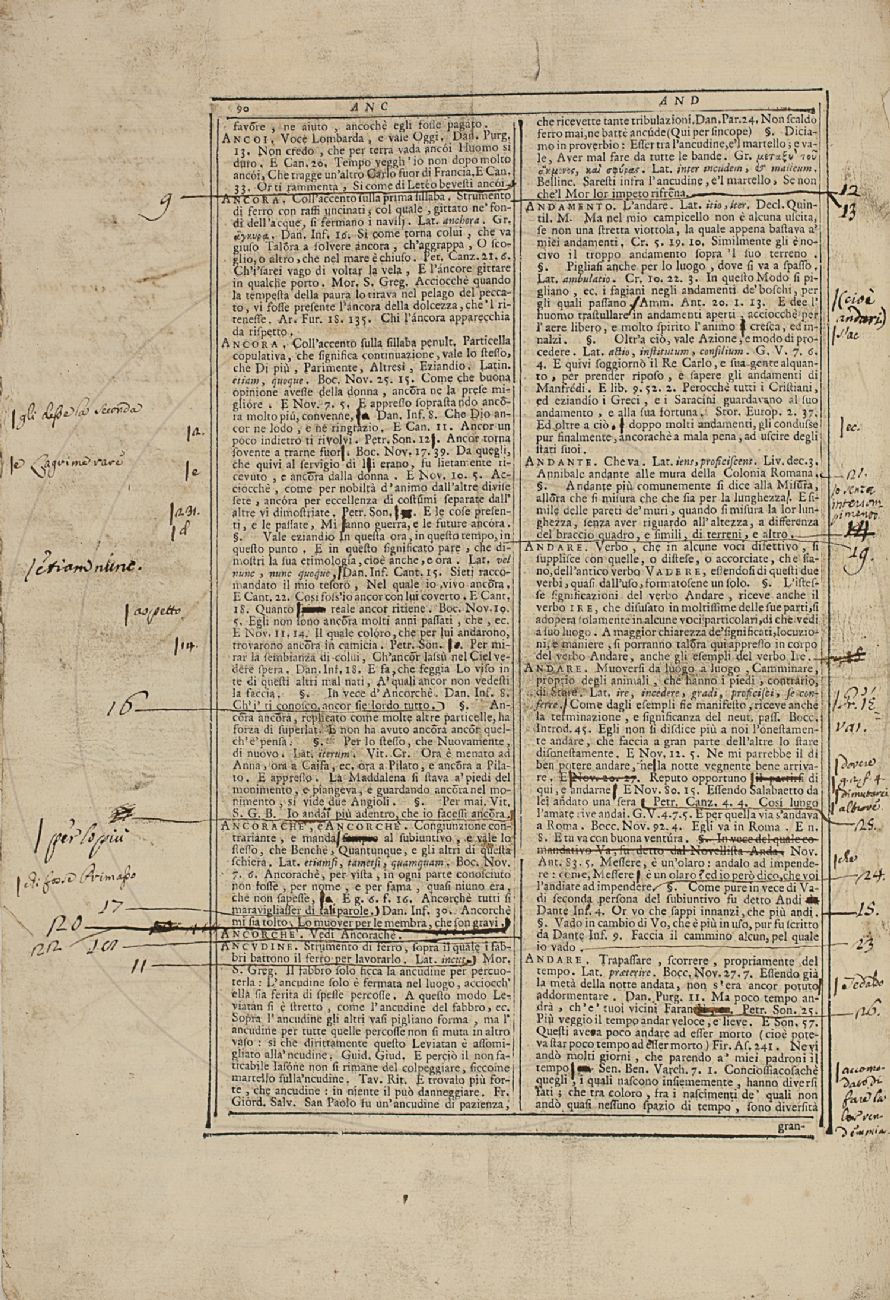 90 ANC
favóre, ne aiuto, ancochè egli fosse pagato.
ANCOI. Voce Lombarda, e vale Oggi. Dan. Purg.
13. Non credo, che per terra vada ancói Huomo sì
duro. E Can. 20. Tempo veggh'io non dopo molto
ancói, Che tragge un'altro Carlo fuor di Francia, E Can.
33. Or ti rammenta, Sì come di Letéo bevesti ancói
ANCORA. Coll'accento sulla prima sillaba. Strumento
di ferro con raffi uncinati, col quale, gittato ne'fon-
di dell'acque, si fermano i navilj. Lat. anchora. Gr.
ἄγκυρα. Dan. Inf. 16. Sì come torna colui, che va
giuso Talóra a solvere áncora, ch'aggrappa, O sco-
glio, o altro, che nel mare è chiuso. Pet. Canz. 21. 6.
Ch'i'sarei vago di voltar la vela, E l'áncore gittare
in qualche porto. Mor. S. Greg. Acciocchè quando
la tempesta della paura lo tirava nel pelago del pecca-
to, vi fosse presente l'áncora della dolcezza, che'l ri-
tenesse. Ar. Fur. 18. 135. Chi l'áncora apparecchia
da rispetto.
ANCORA, Coll'accento sulla sillaba penult. Particella
copulativa, che significa continuazione, vale lo stesso,
che Di più, Parimente, Altresì, Eziandio. Latin.
etiam, quoque. Boc. Nov. 25. 15. Come che buona
opinione avesse della donna, ancóra ne la prese mi-
glióre. E Nov. 7. 5. E appresso soprastando ancó-
ra molto più, convenne, Dan. Inf. 8. Che Dio an-
cor ne lodo, e ne ringrazio. E Can. 11. Ancor un
poco indietro ti rivolvi. Petr. Son. 12. Ancor torna
sovente a trarne fuor. Boc. Nov. 17. 39. Da quegli,
che quivi al servigio di lei erano, fu lietamente ri-
cevuto, e ancóra dalla donna. E Nov. 10. 5. Ac-
ciocchè, come per nobiltà d'animo dall'altre divise
sete, ancóra per eccellenza di costumi separate dall'
altre vi dimostriate. Petr. Son. E le cose presen-
ti, e le passate, Mi danno guerra, e le future ancóra.
§. Vale eziandio In questa ora, in questo tempo, in
questo punto. E in questo significato pare, che di-
mostri la sua etimologia, cioè anche, e ora. Lat. vel
nunc, nunc quoque, Dan. Inf. Cant. 15. Sieti racco-
mandato il mio tesoro, Nel quale io vivo ancóra,
E Cant. 22. Così foss'io ancor con lui coverto. E Cant.
18. Quanto reale ancor ritiene. Boc. Nov. 10.
5. Egli non sono ancóra molti anni passati, che, ec.
E Nov. 11. 14. Il quale colóro, che per lui andarono,
trovarono ancóra in camicia. Petr. Son. Per mi-
rar la sembianza di colui, Ch'ancor lassù nel Ciel ve-
dére spera. Dan. Inf. 18. E fa, che feggia Lo viso in
te di questi altri mal nati, A'quali ancor non vedesti
la faccia. §. In vece d'Ancorchè. Dan. Inf. 8.
Ch'i' ti conosco, ancor sie lordo tutto. §. An-
córa ancóra, replicato come molte altre particelle, ha
forza di superlat. E non ha avuto ancóra ancor quel-
ch'e' pensa. §. Per lo stesso, che Nuovamente,
di nuovo. Lat. iterum. Vit. Cr. Ora è menato ad
Anna, ora a Caifa, ec. ora a Pilato, e ancóra a Pila-
to. E appresso. La Maddalena si stava a'piedi del
monimento, e piangeva, e guardando ancóra nel mo-
nimento, sì vide due Angioli. §. Per mai. Vit.
S. G. B. Io andai più adentro, che io facessi ancóra.
ANCORACHÈ, e ANCORCHÈ. Congiunzione con-
trariante, e manda al subiuntivo, e vale lo
stesso, che Benchè, Quantunque, e gli altri di questa
schiera. Lat. etiamsi, tametsi, quamquam. Boc. Nov.
7. 6. Ancorachè, per vista, in ogni parte conosciuto
non fosse, per nome, e per fama, quasi niuno era,
che non sapesse, E g. 6. f. 16. Ancorchè tutti si
maravigliasser di tali parole. Dan. Inf. 30. Ancorchè
mi sia tolto, Lo muover per le membra, che son gravi,
ANCORCHÈ. Vedi Ancorachè.
ANCUDINE. Strumento di ferro, sopra il quale i fab-
bri battono il ferro per lavorarlo. Lat. incus Mor.
S. Greg. Il fabbro solo ficca la ancudine per percuo-
terla: L'ancudine solo è fermata nel luogo, acciocch'
ella sia ferita di spesse percosse. A questo modo Le-
viatan sì è stretto, come l'ancudine del fabbro, ec.
Sopra l'ancudine gli altri vasi pigliano forma, ma l'
ancudine per tutte quelle percosse non si muta in altro
vaso: sì che dirittamente questo Leviatan è assomi-
gliato alla'ncudine. Guid. Giud. E perciò il non fa-
ticabile Iasóne non si rimane del colpeggiare, siccome
martello sulla'ncudine. Tav. Rit. E trovalo più for-
te, che ancudine: in niente il può danneggiare. Fr.
Giord. Salv. San Paolo fu un'ancudine di pazienza,
AND
che ricevette tante tribulazioni. Dan. Par. 24. Non scaldò
ferro mai, ne battè ancúde (Quì per sincope) §. Dicia-
mo in proverbio: Esser tra l'ancudine, e'l martello; e va-
le, Aver mal fare da tutte le bande. Gr. μεταξὺ τοῦ
ἄκμονος, καὶ σφύρας. Lat. inter incudem, & malleum.
Bellinc. Saresti infra l'ancudine, e'l martello, Se non
che'l Mor lor impeto risrena.
ANDAMENTO. L'andare. Lat. itio, iter. Decl. Quin-
til. M. Ma nel mio campicello non è alcuna uscita,
se non una stretta viottola, la quale appena bastava a'
miei andamenti. Cr. 5. 19. 10. Similmente gli è no-
civo il troppo andamento sopra 'l suo terreno.
§. Pigliasi anche per lo luogo, dove si va a spasso.
Lat. ambulatio. Cr. 10. 22. 3. In questo Modo si pi-
gliano, ec. i fagiani negli andamenti de'boschi, per
gli quali passano Amm. Ant. 20. 1. 13. E dee l'
huomo trastullare in andamenti aperti, acciocchè per
l'aere libero, e molto spirito l'animo cresca, ed in-
nalzi. §. Oltr'a ciò, vale Azione, e modo di pro-
cedere. Lat. actio, institutum, consilium. G. V. 7. 6.
4. E quivi soggiornò il Re Carlo, e sua gente alquan-
to, per prender riposo, e sapere gli andamenti di
Manfrédi. E lib. 9. 52. 2. Perocchè tutti i Cristiani,
ed eziandio i Greci, e i Saracini guardavano al suo
andamento, e alla sua fortuna. Stor. Europ. 2. 37.
Ed oltre a ciò, doppo molti andamenti, gli condusse
pur finalmente, ancorachè a mala pena, ad uscire degli
stati suoi.
ANDANTE. Che va. Lat. iens, proficiscens. Liv. dec. 3.
Annibale andante alle mura della Colonia Romana.
§. Andante più comunemente si dice alla Misura,
allóra che si misura che che sia per la lunghezza. E si-
mile delle pareti de'muri, quando si misura la lor lun-
ghezza, senza aver riguardo all'altezza, a differenza
del braccio quadro, e simili, di terreni, e altro.
ANDARE. Verbo, che in alcune voci difettivo, si
supplisce con quelle, o distese, o accorciate, che si sia-
no, dell'antico verbo VADERE, essendosi di questi due
verbi, quasi dall'uso, formatosene un solo. §. L'istes-
se significazioni del verbo Andare, riceve anche il
verbo IRE, che disusato in moltissime delle sue parti, si
adopera solamente in alcune voci particolari, di che vedi
a suo luogo. A maggior chiarezza de'significati, locuzio-
ni, e maniere, si porranno talóra quì appresso in corpo
del verbo Andare, anche gli esempli del verbo Ire.
ANDARE. Muoversi da luogo a luogo, Camminare,
proprio degli animali, che hanno i piedi, contrário,
di Stare. Lat. ire, incedere, gradi, proficisci, se con-
ferre. Come dagli esempli fie manifesto, riceve anche
la terminazione, e significanza del neut. pass. Bocc.
Introd. 45. Egli non si disdice più a noi l'onestamen-
te andare, che faccia a gran parte dell'altre lo stare
disonestamente. E Nov. 12. 5. Ne mi parrebbe il dì
ben potere andare, nella notte vegnente bene arriva-
re. E Nov. 20. 27. Reputo opportuno il partirsi di
quì, e andarne E Nov. 80. 15. Essendo Salabaetto da
lei andato una sera Petr. Canz. 4. 4. Così lungo
l'amate rive andai. G. V. 4. 7. 5. E per quella via s'andava
a Roma. Bocc. Nov. 92. 4. Egli va in Roma. E n.
8. E tu va con buona ventúra. §. In vece del quale co-
mandativo Va, fu detto dal Novellista Anda, Nov.
Ant. 83. 5. Messere, è un'olaro: andalo ad impende-
re: come, Messere è un olaro? ed io però dico, che voi
l'andiare ad impendere, §. Come pure in vece di Va-
di seconda persona del subiuntivo fu detto Andi
Dante Inf. 4. Or vo che sappi innanzi, che più andi.
§. Vado in cambio di Vo, che è più in uso, pur fu scritto
da Dante Inf. 9. Faccia il cammino alcun, pel quale
io vado.
ANDARE, Trapassare, scorrere, propriamente del
tempo. Lat. præterire. Bocc. Nov. 27. 7. Essendo già
la metà della notte andata, non s'era ancor potuto
addormentare. Dan. Purg. 11. Ma poco tempo an-
drà, ch'e' tuoi vicini Faran Petr. Son. 25.
Più veggio il tempo andar veloce, e lieve. E Son. 57.
Questi avea poco andare ad esser morto (cioè pote-
va star poco tempo ad esser morto) Fir. As. 241. Ne vi
andò molti giorni, che parendo a' miei padroni il
tempo Sen. Ben. Varch. 7. 1. Conciossiacosachè
quegli, i quali nascono insiememente, hanno diversi
fati; che tra coloro, fra i nascimenti de' quali non
andò quasi nessuno spazio di tempo, sono diversità
gran-
9
gli lasse la seconda
a.
e Lagrimevare
e
a 31.
d
etiam nunc.
aspetto
14.
16
per lo più
di fosse Primasso
17
120
122 101
11
12
13
(cioè
andari)
s'ac
ec.
21.
19
var.
25.
che
24.
15.
23
Tedaldo
26.
accomo-